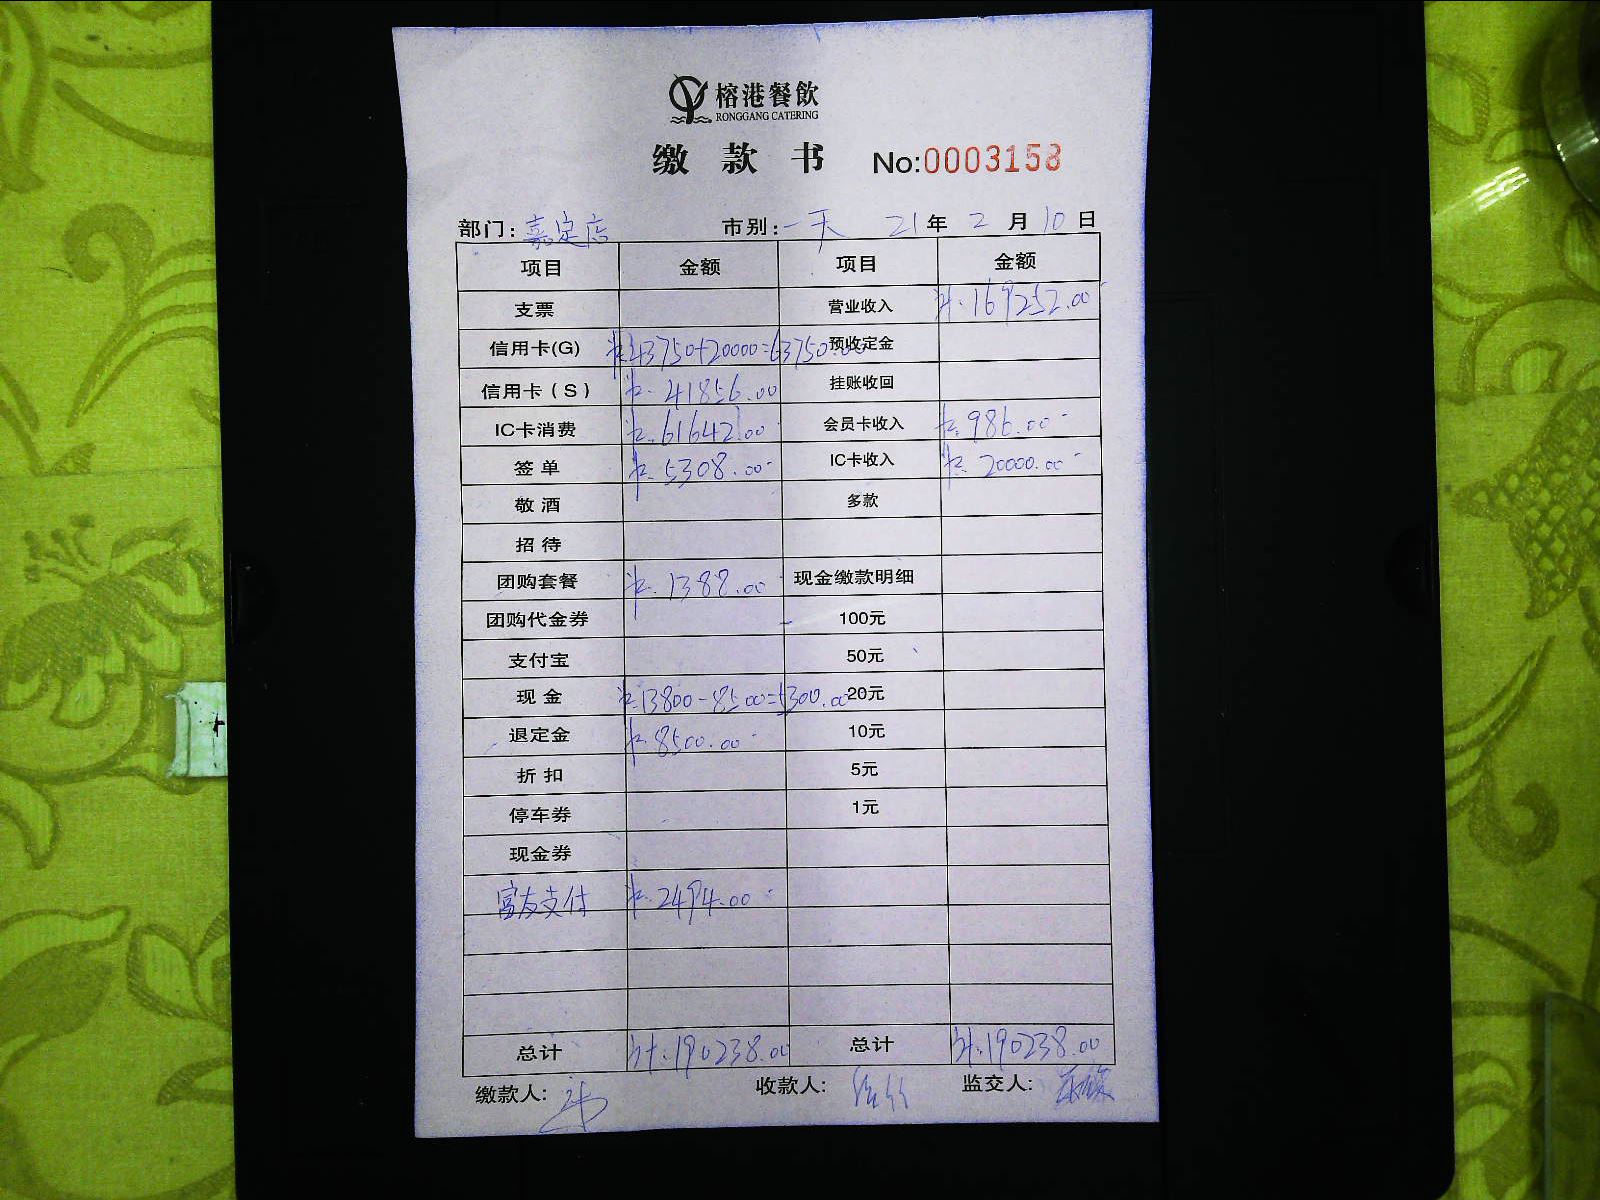 榕港餐飲
RONGGANG CATERING
缴款书 No:0003158
部门:嘉定店 市别:一天 21年2月10日
项目 金额 项目 金额
支票 营业收入 169252.00
信用卡(G) 43750+20000=63750.00 预收定金
信用卡(S) 41856.00 挂账收回
IC卡消费 61642.00 会员卡收入 986.00
签单 5308.00 IC卡收入 20000.00
敬酒 多款
招待
团购套餐 1388.00 现金缴款明细
团购代金券 100元
支付宝 50元
现金 13800-8500=5300.00 20元
退定金 8500.00 10元
折扣 5元
停车券 1元
现金券
富友支付 2494.00
总计 190238.00 总计 190238.00
缴款人: 收款人: 监交人: